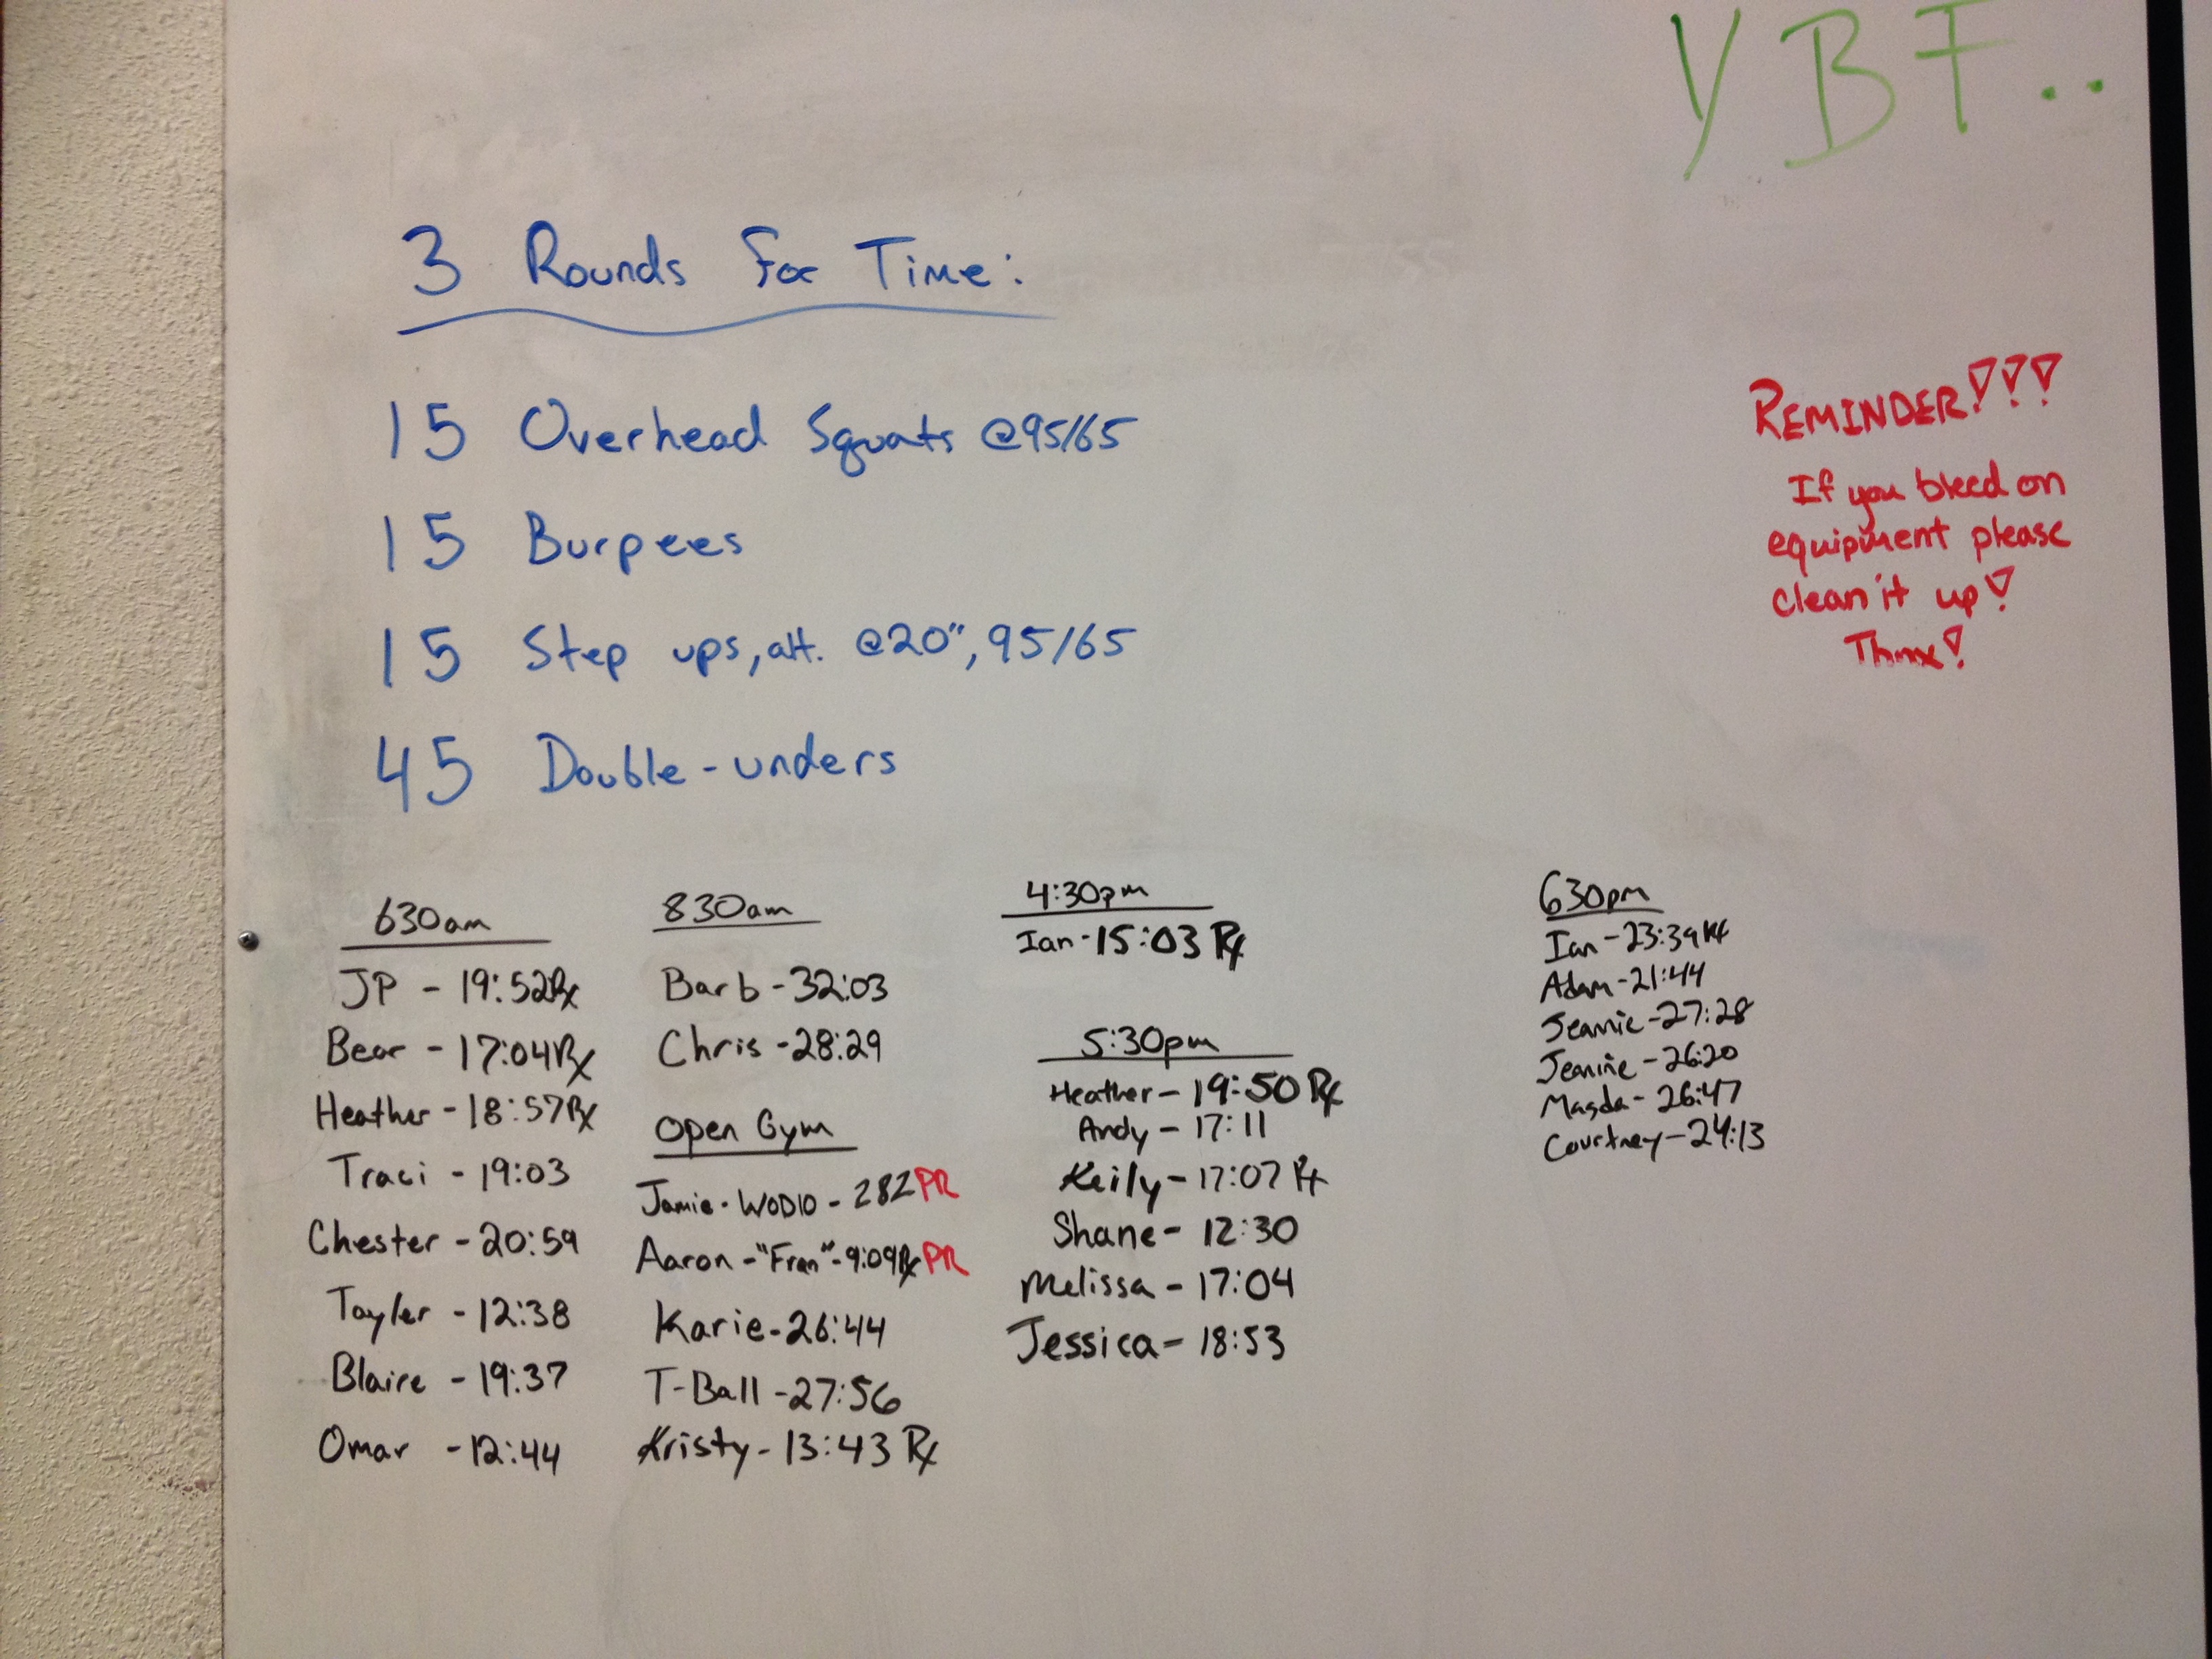 YBF..
3 Rounds For Time:
15 Overhead Squats @95/65
15 Burpees
15 Step ups, alt. @20", 95/65
45 Double-unders
REMINDER!!!
If you bleed on
equipment please
clean it up!
Thnx!
630am
JP - 19:52Rx
Bear - 17:04Rx
Heather - 18:57Rx
Traci - 19:03
Chester - 20:59
Tayler - 12:38
Blaire - 19:37
Omar - 12:44
830am
Barb - 32:03
Chris - 28:29
Open Gym
Jamie - WOD10 - 282 PR
Aaron - "Fran" - 9:09Rx PR
Karie - 26:44
T-Ball - 27:56
Kristy - 13:43 Rx
4:30pm
Ian - 15:03 Rx
5:30pm
Heather - 19:50 Rx
Andy - 17:11
Keily - 17:07 Rx
Shane - 12:30
Melissa - 17:04
Jessica - 18:53
630pm
Ian - 23:39 Rx
Adam - 21:44
Jeannie - 27:28
Jeanine - 26:20
Magda - 26:47
Courtney - 24:13